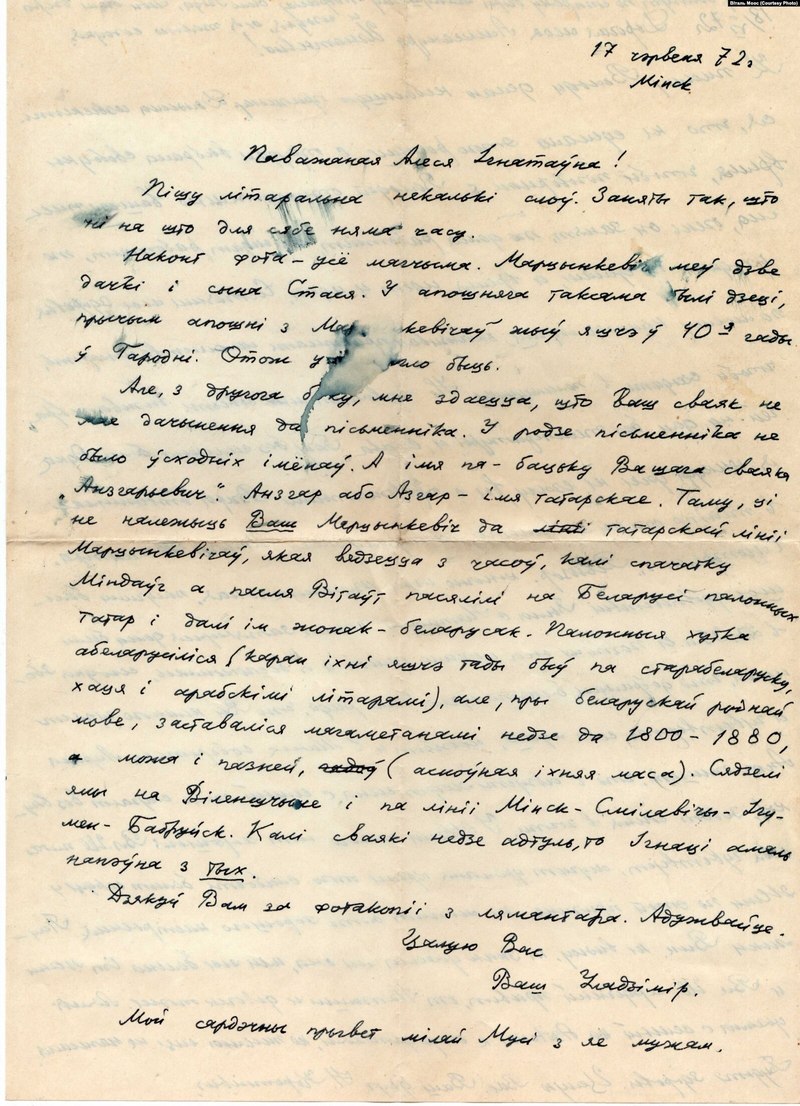 Віталь Моос (Courtesy Photo)
17 чэрвеня 72 г
Мінск
Паважаная Алеся Ігнатаўна!
Пішу літаральна некалькі слоў. Заняты так, што
ні на што для сябе няма часу.
Наконт фота – усё магчыма. Марцынкевіч меў дзве
дачкі і сына Стася. У апошняга таксама былі дзеці,
прычым апошні з Мар кевічаў жыў яшчэ ў 40-я гады
ў Гародні. Отож магло быць.
Але, з другога боку, мне здаецца, што Ваш сваяк не
мае дачынення да пісьменніка. У родзе пісьменніка не
было ўсходніх імёнаў. А імя па-бацьку Вашага сваяка
"Анзгарьевич". Анзгар або Азгар – імя татарскае. Таму, ці
не належыць Ваш Марцынкевіч да лініі татарскай лініі
Марцынкевічаў, якая вядзецца з часоў, калі спачатку
Міндаўг а пасля Вітаўт пасялілі на Беларусі палонных
татар і далі ім жонак-беларусак. Палонныя хутка
абеларусіліся (каран іхні яшчэ тады быў па старабеларуску,
хаця і арабскімі літарамі), але, пры беларускай роднай
мове, заставаліся магаметанамі недзе да 1800-1880,
а можа і пазней, гадоў (асноўная іхняя маса). Сядзелі
яны на Віленшчыне і па лініі Мінск-Смілавічы-Ігу-
мен-Бабруйск. Калі сваякі недзе адтуль, то Ігнаці амаль
напэўна з тых.
Дзякуй Вам за фотакопіі з лямантара. Адужвайце.
Цалую Вас
Ваш Уладзімір.
Мой сардэчны прывет мілай Мусі з яе мужам.